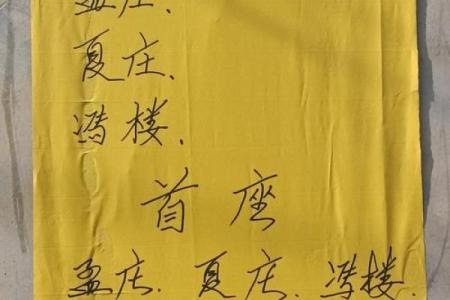 孟庄、
夏庄、
冯楼、
首座
孟庄、夏庄、冯楼、